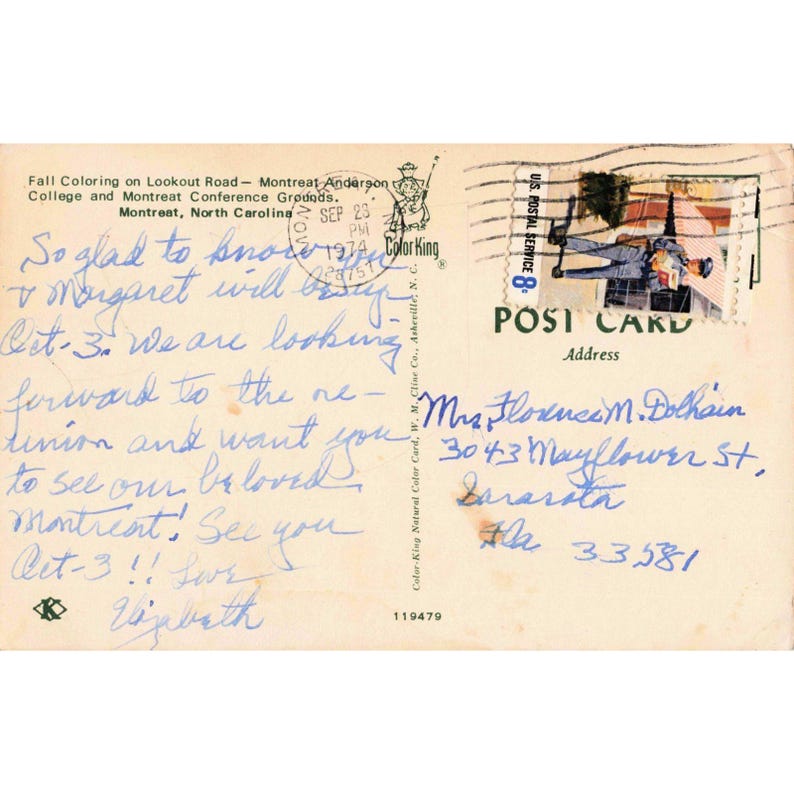 Fall Coloring on Lookout Road — Montreat Anderson
College and Montreat Conference Grounds.
Montreat, North Carolina
So glad to know you
& Margaret will be up
Oct-3. We are looking
forward to the re-
union and want you
to see our beloved
Montreat! See you
Oct-3!! Love
Elizabeth
K
SEP 23
PM
1974
28757
Color King ®
Color-King Natural Color Card, W. M. Cline Co., Asheville, N. C.
119479
U.S. POSTAL SERVICE 8c
POST CARD
Address
Mrs. Florence M. Dolhain
3043 Mayflower St,
Sarasota
Fla 33581